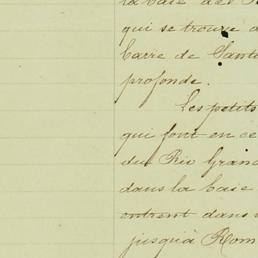 la baie de
qui se trouve
barre de
profonde.
Les petits
qui font en ce
du Rio Gran
dans la baie
entrent dans
jusqu'à Rom